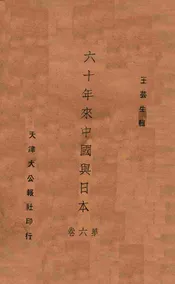 王芸生輯
六十年來中國與日本
第六卷
天津大公報社印行